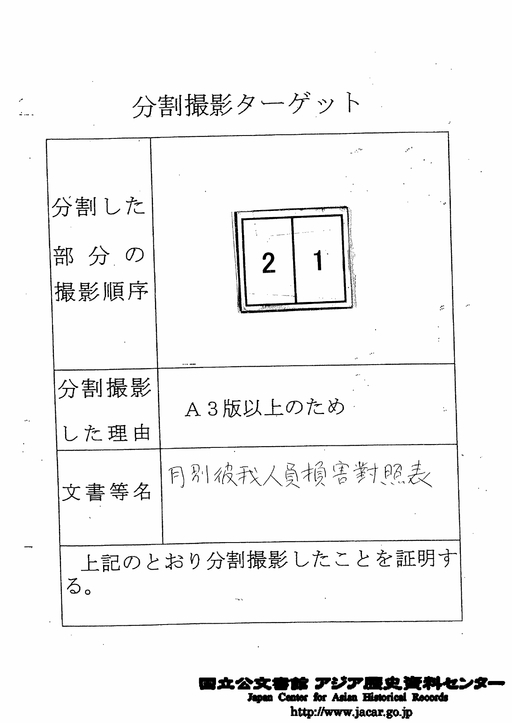 分割撮影ターゲット
分割した
部分の
撮影順序
2 1
分割撮影
した理由
A3版以上のため
文書等名
月別彼我人員損害對照表
上記のとおり分割撮影したことを証明す
る。
国立公文書館 アジア歴史資料センター
Japan Center for Asian Historical Records
http://www.jacar.go.jp